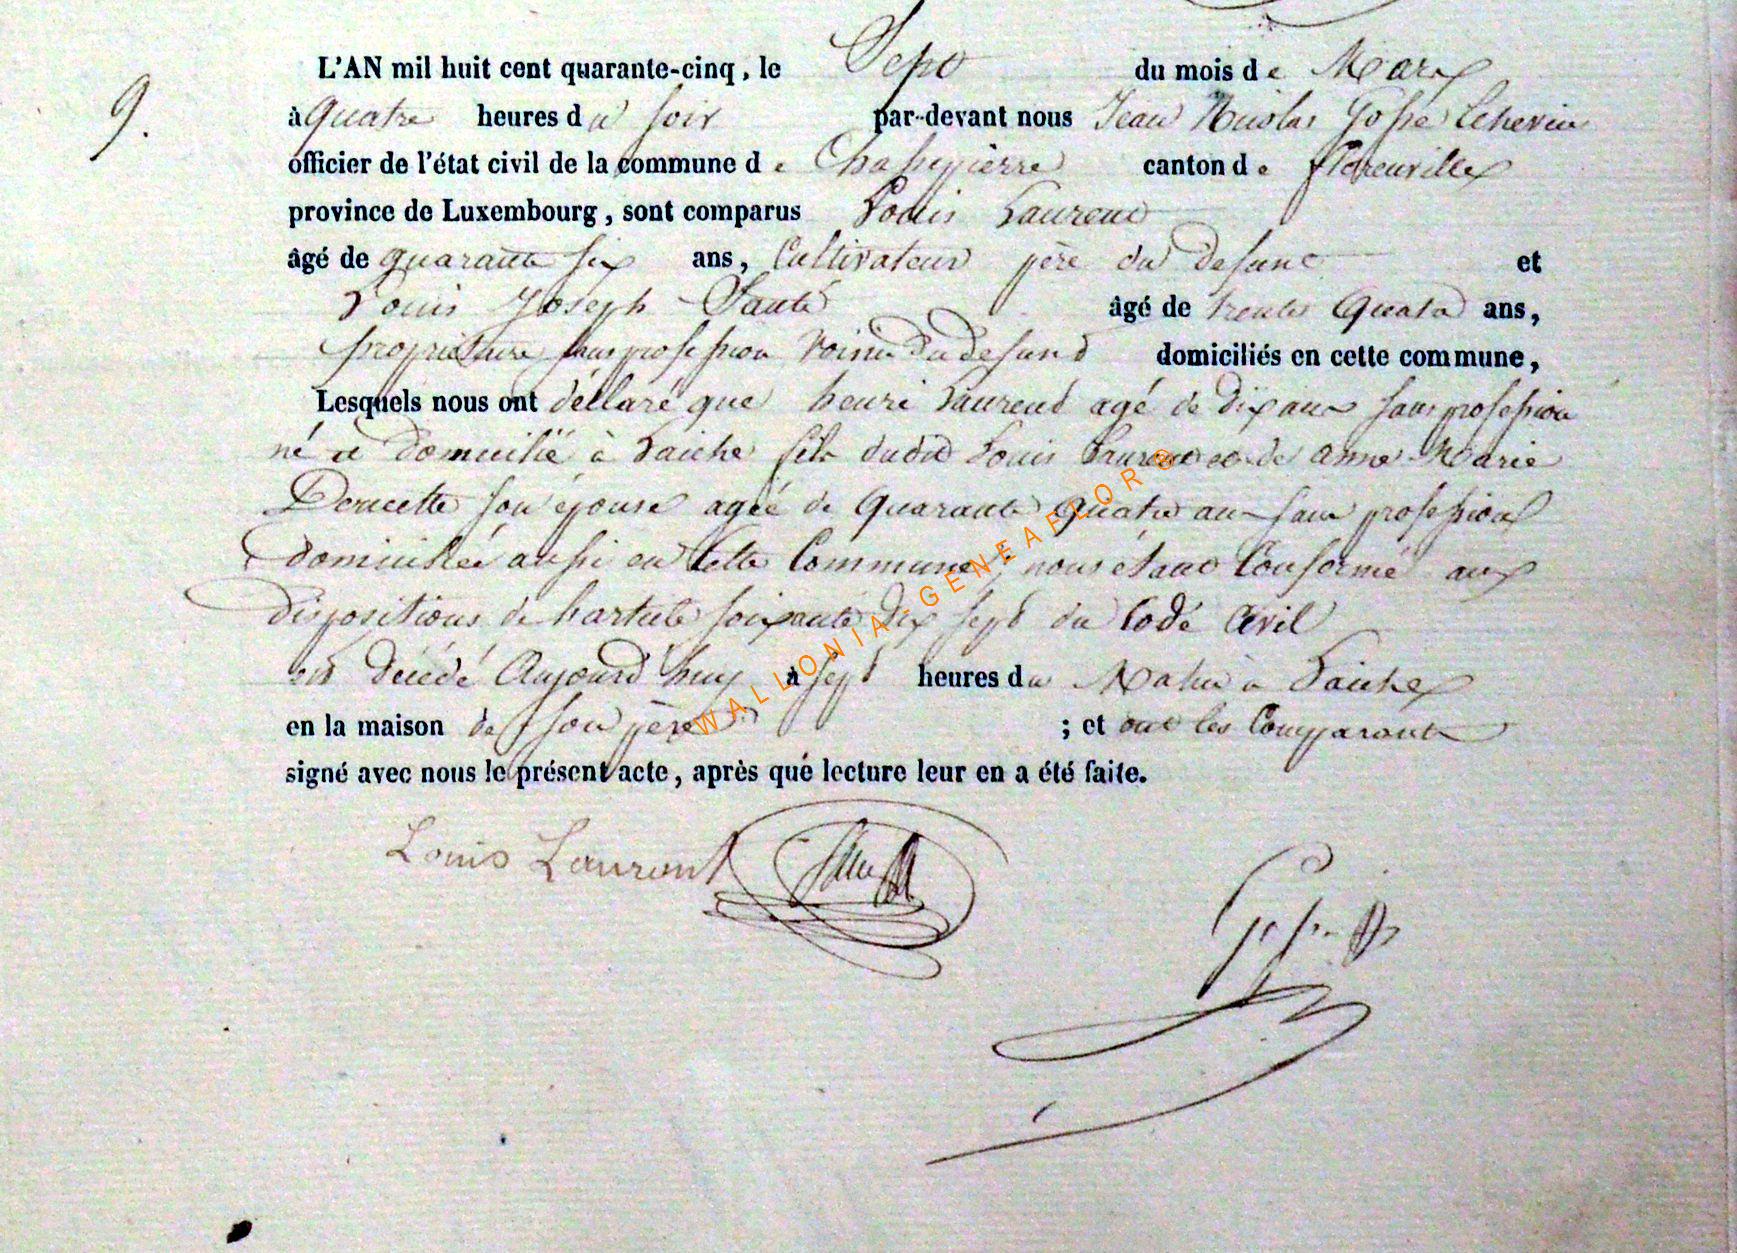 9.
L'AN mil huit cent quarante-cinq, le Sept du mois de Mars
à quatre heures du soir par-devant nous Jean Nicolas Gosse Echevin
officier de l'état civil de la commune de Chassepierre canton de florenville
province de Luxembourg, sont comparus Louis Laurent
âgé de quarante six ans, Cultivateur père du defunt et
Louis Joseph Santé âgé de trente quatre ans,
propriétaire sans profession voisin du defunt domiciliés en cette commune,
Lesquels nous ont déclaré que henri Laurent agé de dix ans sans profession
né et domicilié à Laiche fils dudit Louis Laurent et de anne Marie
son épouse agée de quarante quatre ans sans profession
domiciliée aussi en cette Commune, nous étant Conformé aux
dispositions de l'article soixante dix sept du Code Civil
est décédé Aujourd'huy à sept heures du Matin à Laiche
en la maison de son père ; et ont les Comparants
signé avec nous le présent acte, après qué lecture leur en a été faite.
Louis Laurent
WALLONIA-GENEAFLOR®